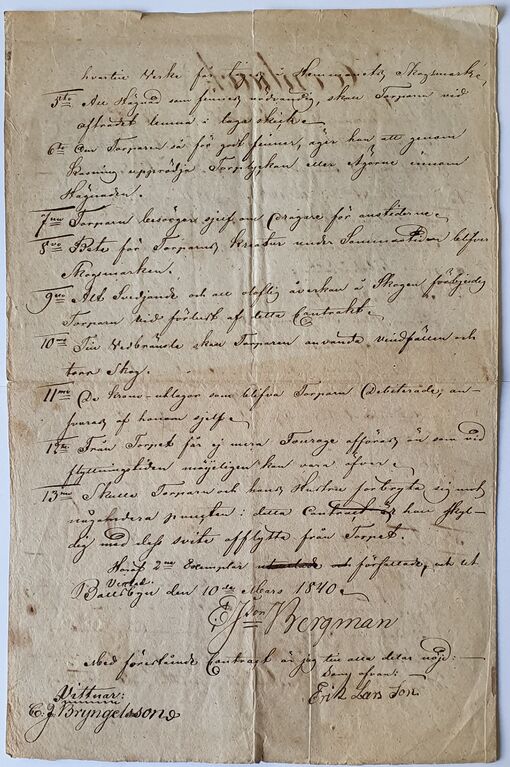 hvartill Virke får tagas i Hemmanets Skogsmark,
5te All Hägnad som finnes nödvändig, skall Torparn vid
afträdet lemna i laga skick.
6te Om Torparen så för godt finner, äger han att genom
Torplyckan eller Ägorne innom
Hägnaden.
7mo Torparn besörger sjelf om Dragare för
8vo Bete för Torparns kreatur under Sommartiden blifver
Skogsmarken.
9no Allt Svedjande och all olaflig åverkan å Skogen förbjudes
Torparn vid förlust af detta Contrakt.
10mo Till Vedbrände skall Torparen använda vindfällen och
torr Skog.
11mo De krono-utlagor som blifva Torparn Debiterade, an-
svaras af honom sjelf.
12te Från Torpet får ej mera Fourage afföras än som vid
flyttningstiden möjeligen kan vara öfver.
13mo Skulle Torparn och hans Hustru förbryta sig mot
någondera puncten i detta Contract är han skyl-
dig med dess svite afflytta från Torpet.
Häraf 2ne Exemplar författade, och ett
den 10de Mars 1840.
E J son Bergman
Med förestående Contract är jag till alla delar nöjd:
Som ofvan:
Erik Lars Son
Vittnar:
C. J. Bryngelsson